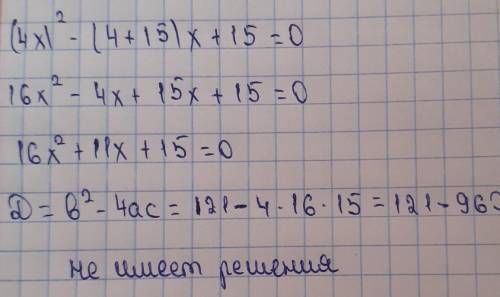 (4x)² - (4+15)x + 15 = 0
16x² - 4x + 15x + 15 = 0
16x² + 11x + 15 = 0
D = b² - 4ac = 121 - 4 · 16 · 15 = 121 - 96
не имеет решения